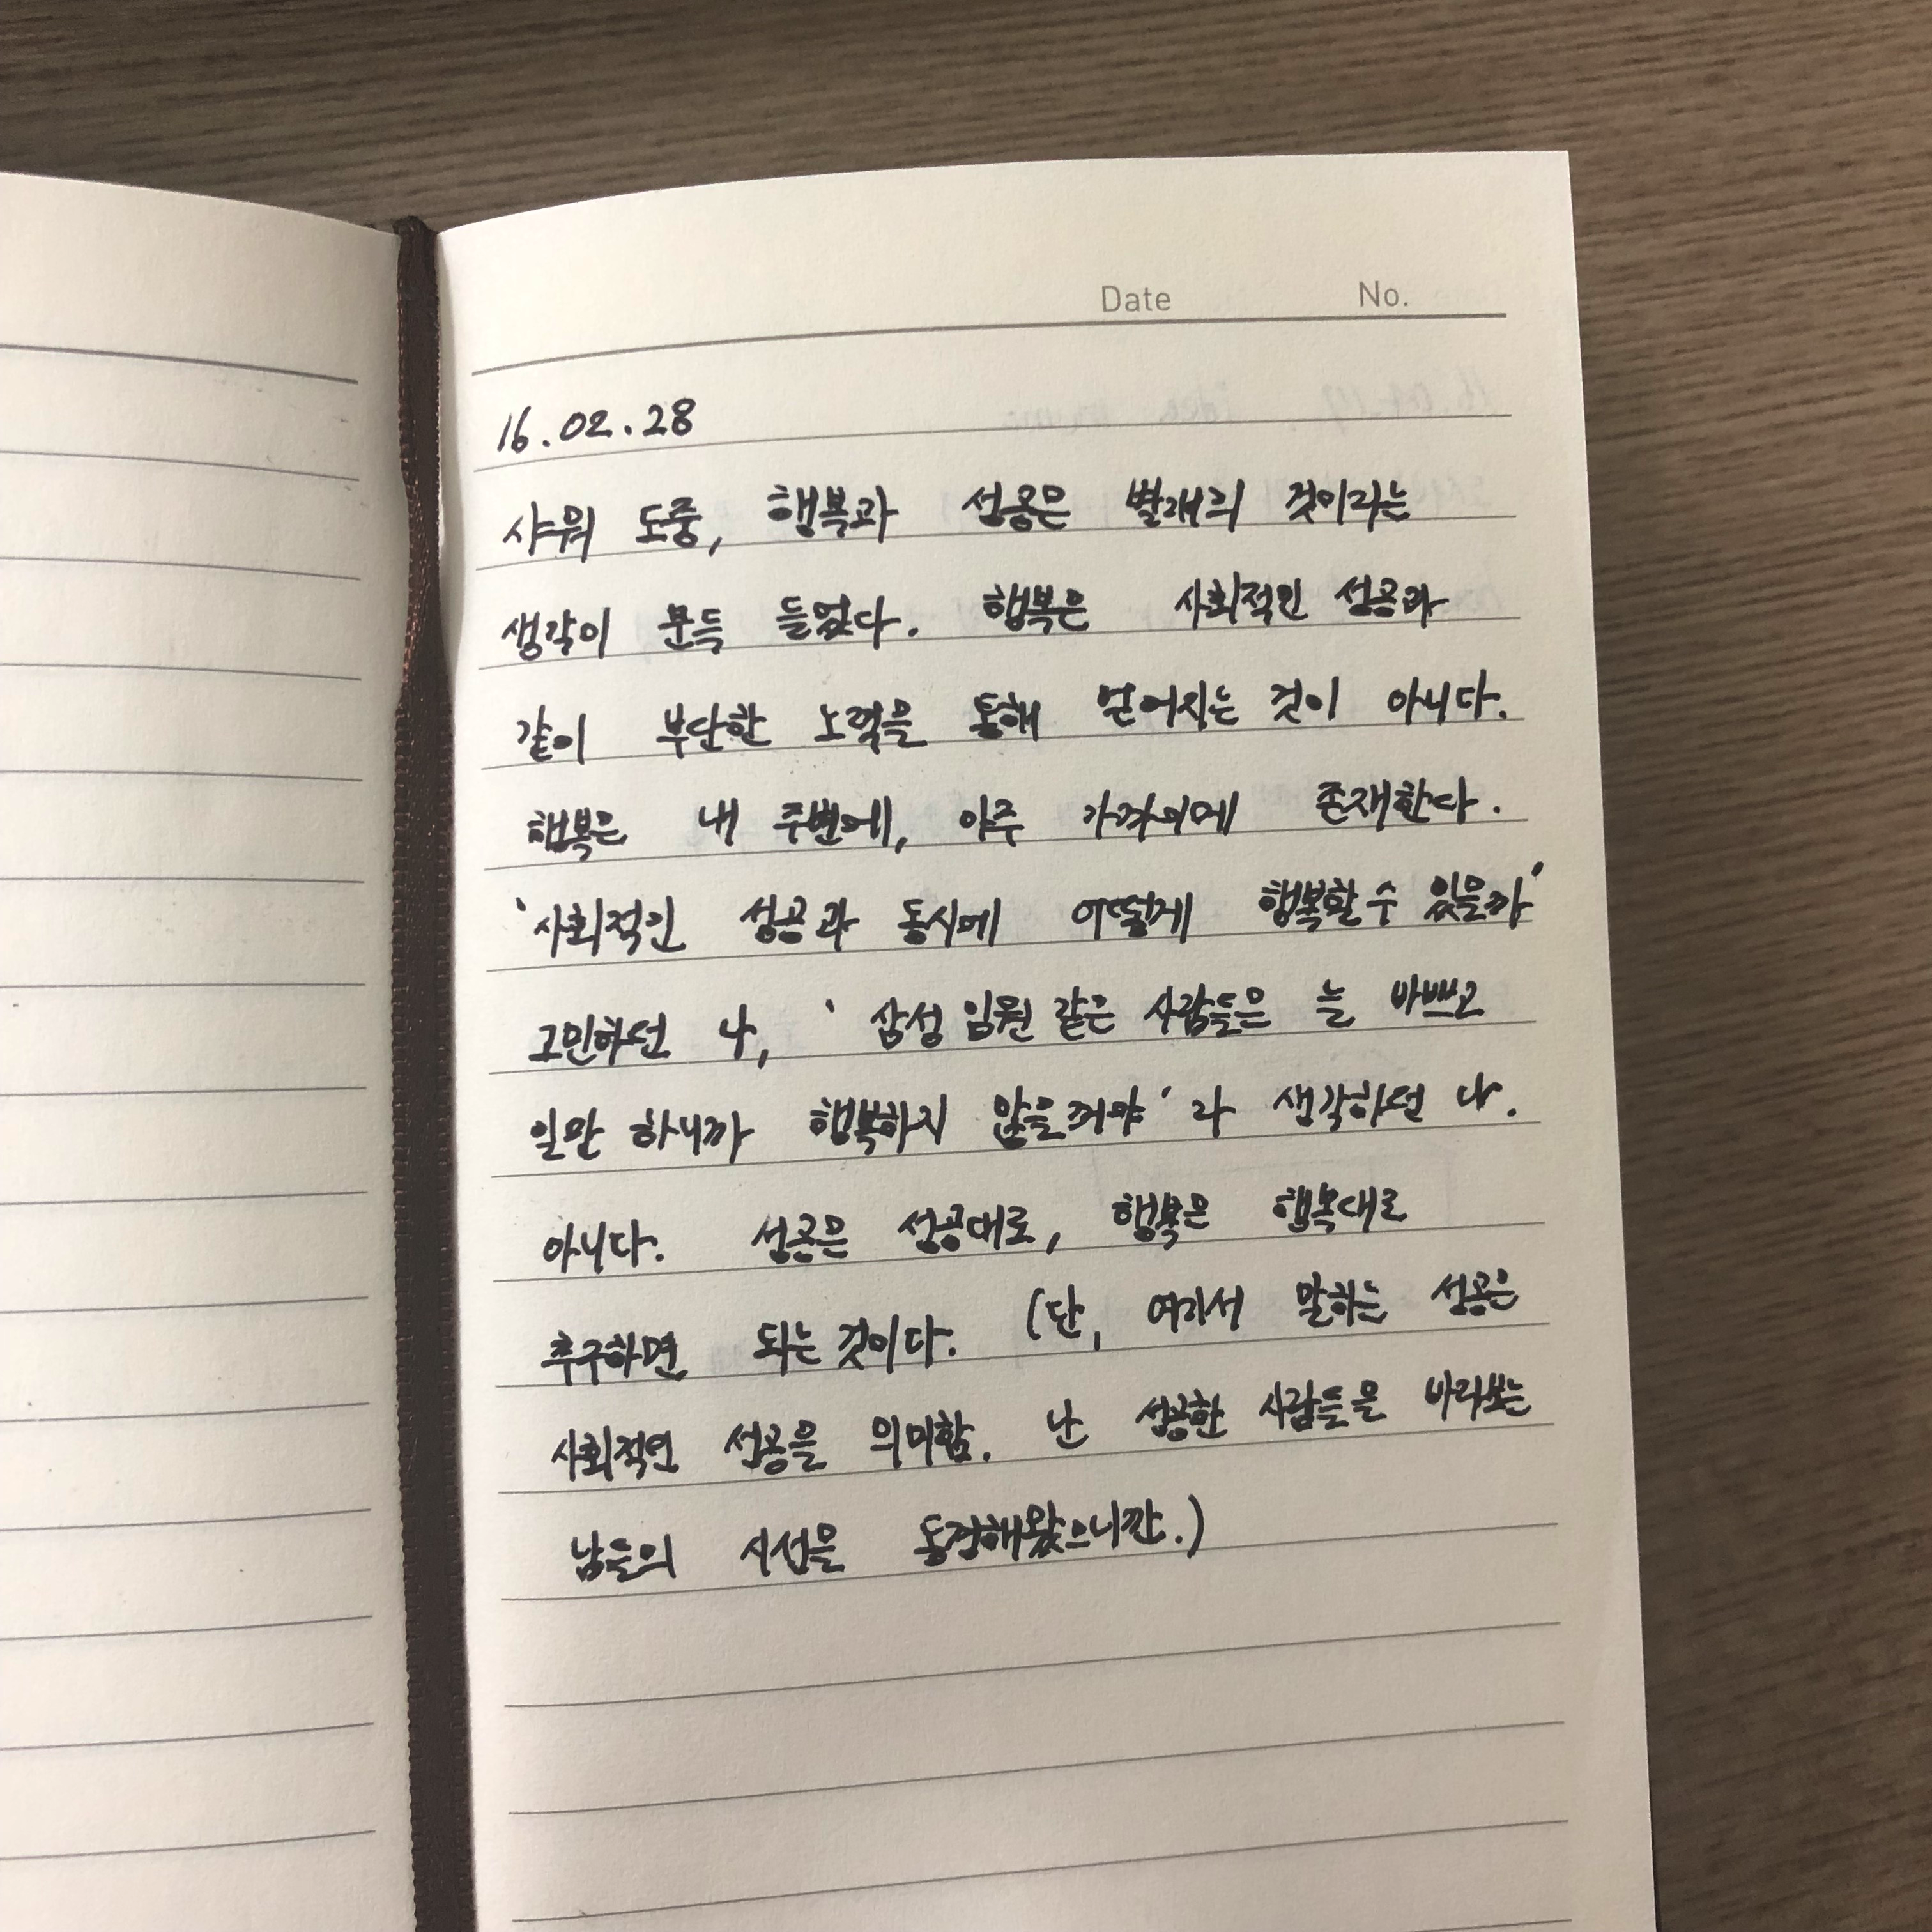 Date No.
16.02.28
샤워 도중, 행복과 성공은 별개의 것이라는
생각이 문득 들었다. 행복은 사회적인 성공과
같이 부단한 노력을 통해 얻어지는 것이 아니다.
행복은 내 주변에, 아주 가까이에 존재한다.
'사회적인 성공과 동시에 어떻게 행복할 수 있을까'
고민하던 나, '삼성 임원 같은 사람들은 늘 바쁘고
일만 하니까 행복하지 않을꺼야' 라 생각하던 나.
아니다. 성공은 성공대로, 행복은 행복대로
추구하면 되는 것이다. (단, 여기서 말하는 성공은
사회적인 성공을 의미함. 난 성공한 사람들을 바라보는
남들의 시선을 동경해왔으니깐.)